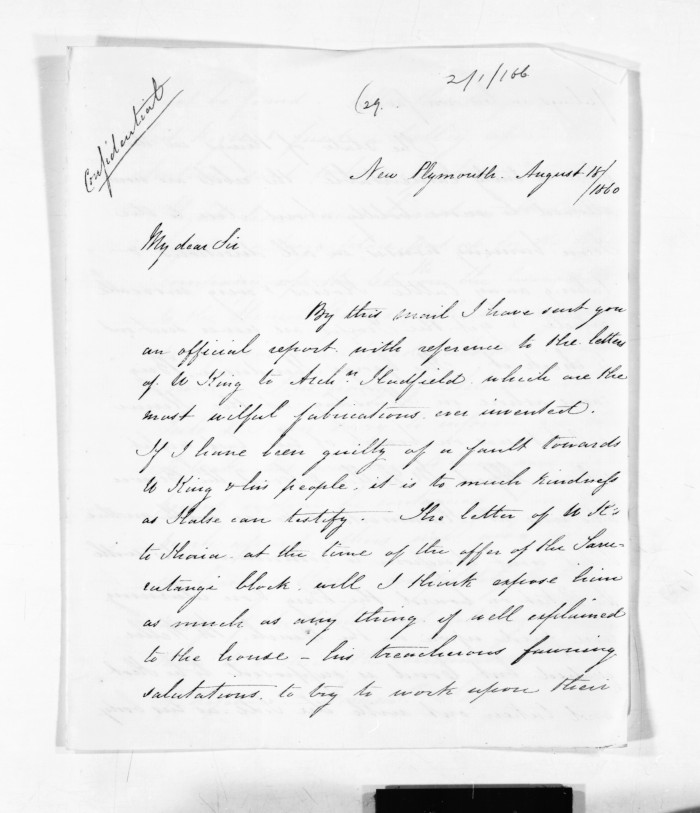 2/1/166
(29.
Confidential
New Plymouth. August 18/
/1860
My dear Sir
By this mail I have sent you
an official report with reference to the letters
of W King to Archn. Hadfield which are the
most wilful fabrications ever invented.
If I have been guilty of a fault towards
W King & his people, it is to much kindness
as Halse can testify. The letter of W K's
to Ihaia at the time of the offer of the Taru-
rutangi block will I think expose him
as much as any thing if well explained
to the house - his treacherous fawning
salutations to try to work upon their